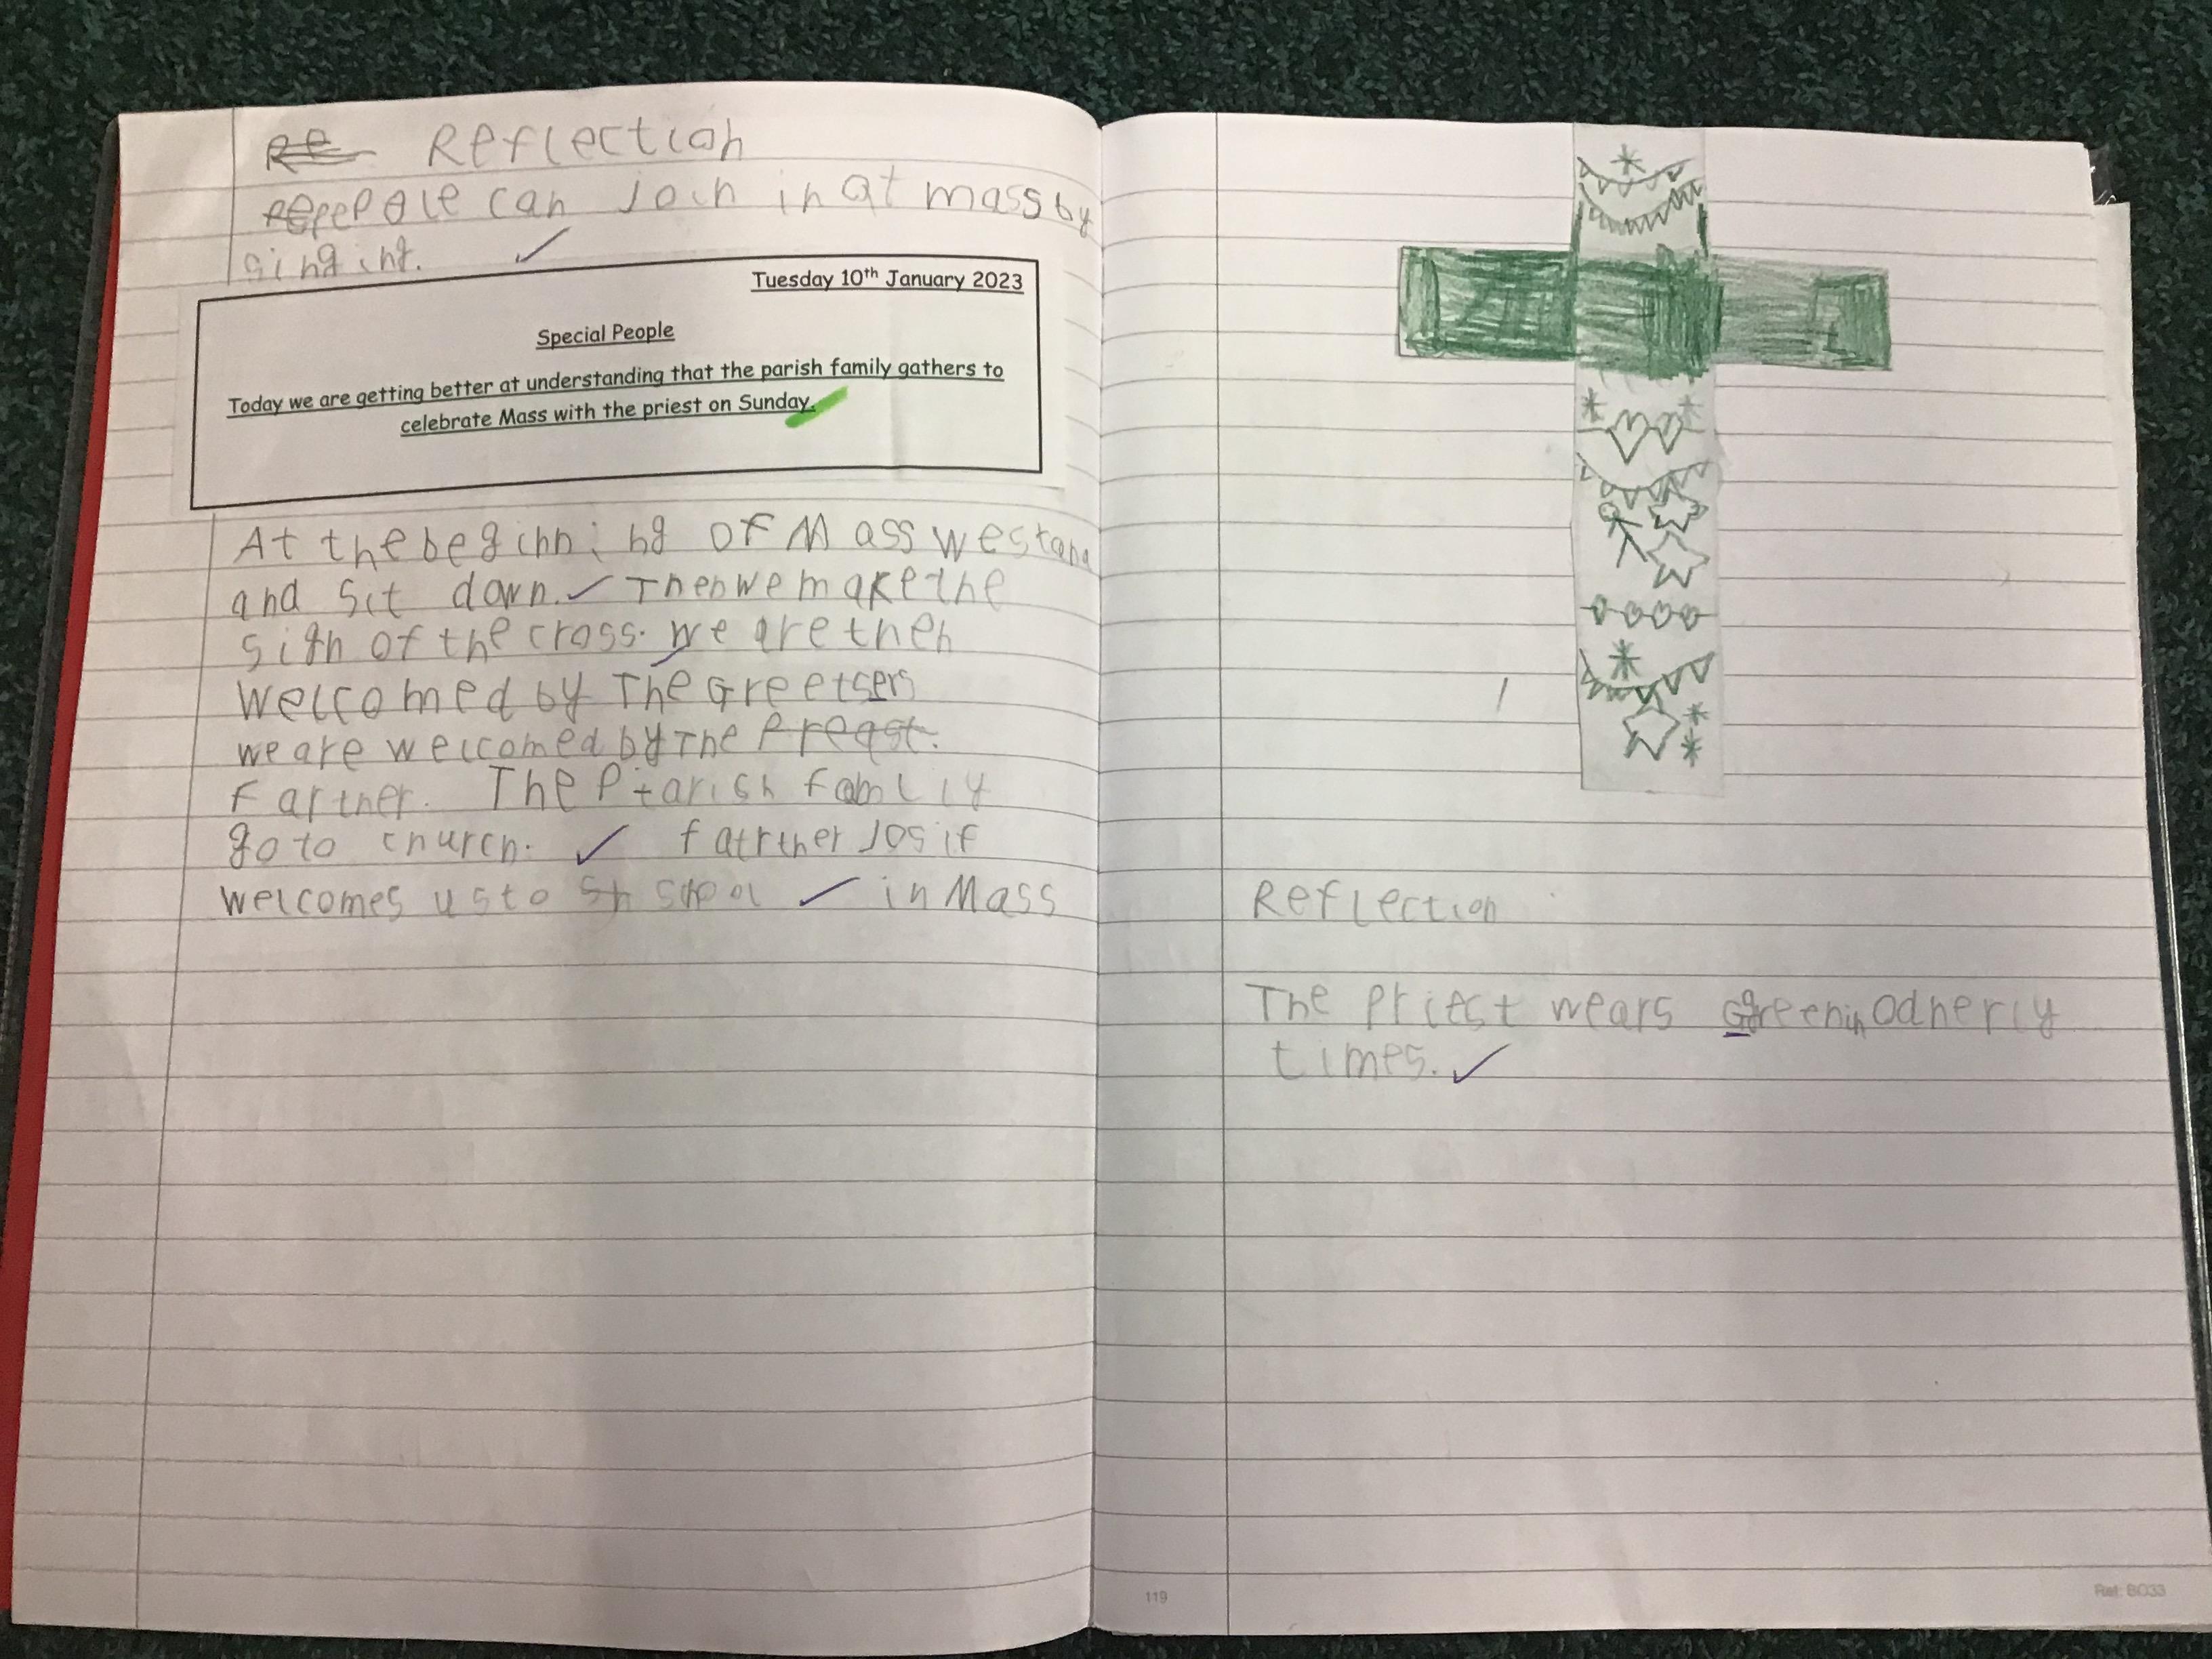 Re Reflection
repepeople can join in at mass by
singing.
Tuesday 10th January 2023
Special People
Today we are getting better at understanding that the parish family gathers to
celebrate Mass with the priest on Sunday.
At the beginning of Mass we stand
and sit down. Then we make the
sign of the cross. We are then
welcomed by The Greetsers
we are welcomed by The Preast.
Farther. The Ptarish famliy
go to church. fatrther Josif
welcomes us to Sh scool in Mass
Reflection
The Priest wears Ggreen in Odnerly
times.
119
Ref: BO33